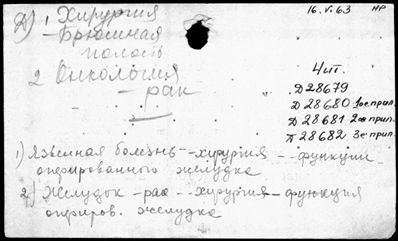 Д) 1 Хирургия
16.V.63 НР
– Брюшная
полость
2 Онкология
– рак
4 шт.
Д28679
Д28680 1ое прил.
Д28681 2ое прил.
Д28682 3е прил.
1) Язвенная болезнь -- хирургия -- функции
оперированного желудка
2) Желудок - рак -- хирургия - функция
опериров. желудка